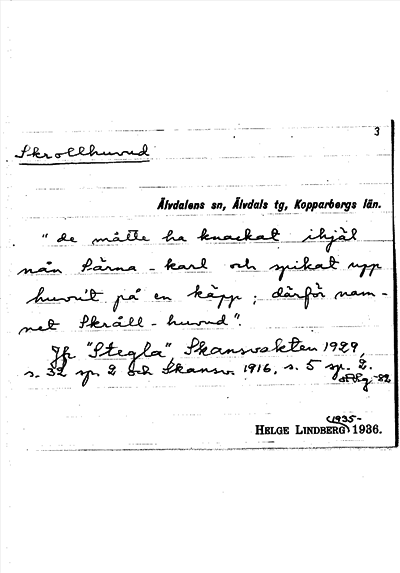 3
Skrollhuvud
Älvdalens sn, Älvdals tg, Kopparbergs län.
"de måtte ha knackat ihjäl
nån Särna-karl och spikat upp
huvu't på en käpp; därför nam-
net Skråll-huvud".
Jfr "Stegla", Skansvakten 1929,
s. 32 sp. 2 och Skansv. 1916, s. 5 sp. 2.
-82
1935-
HELGE LINDBERG 1936.